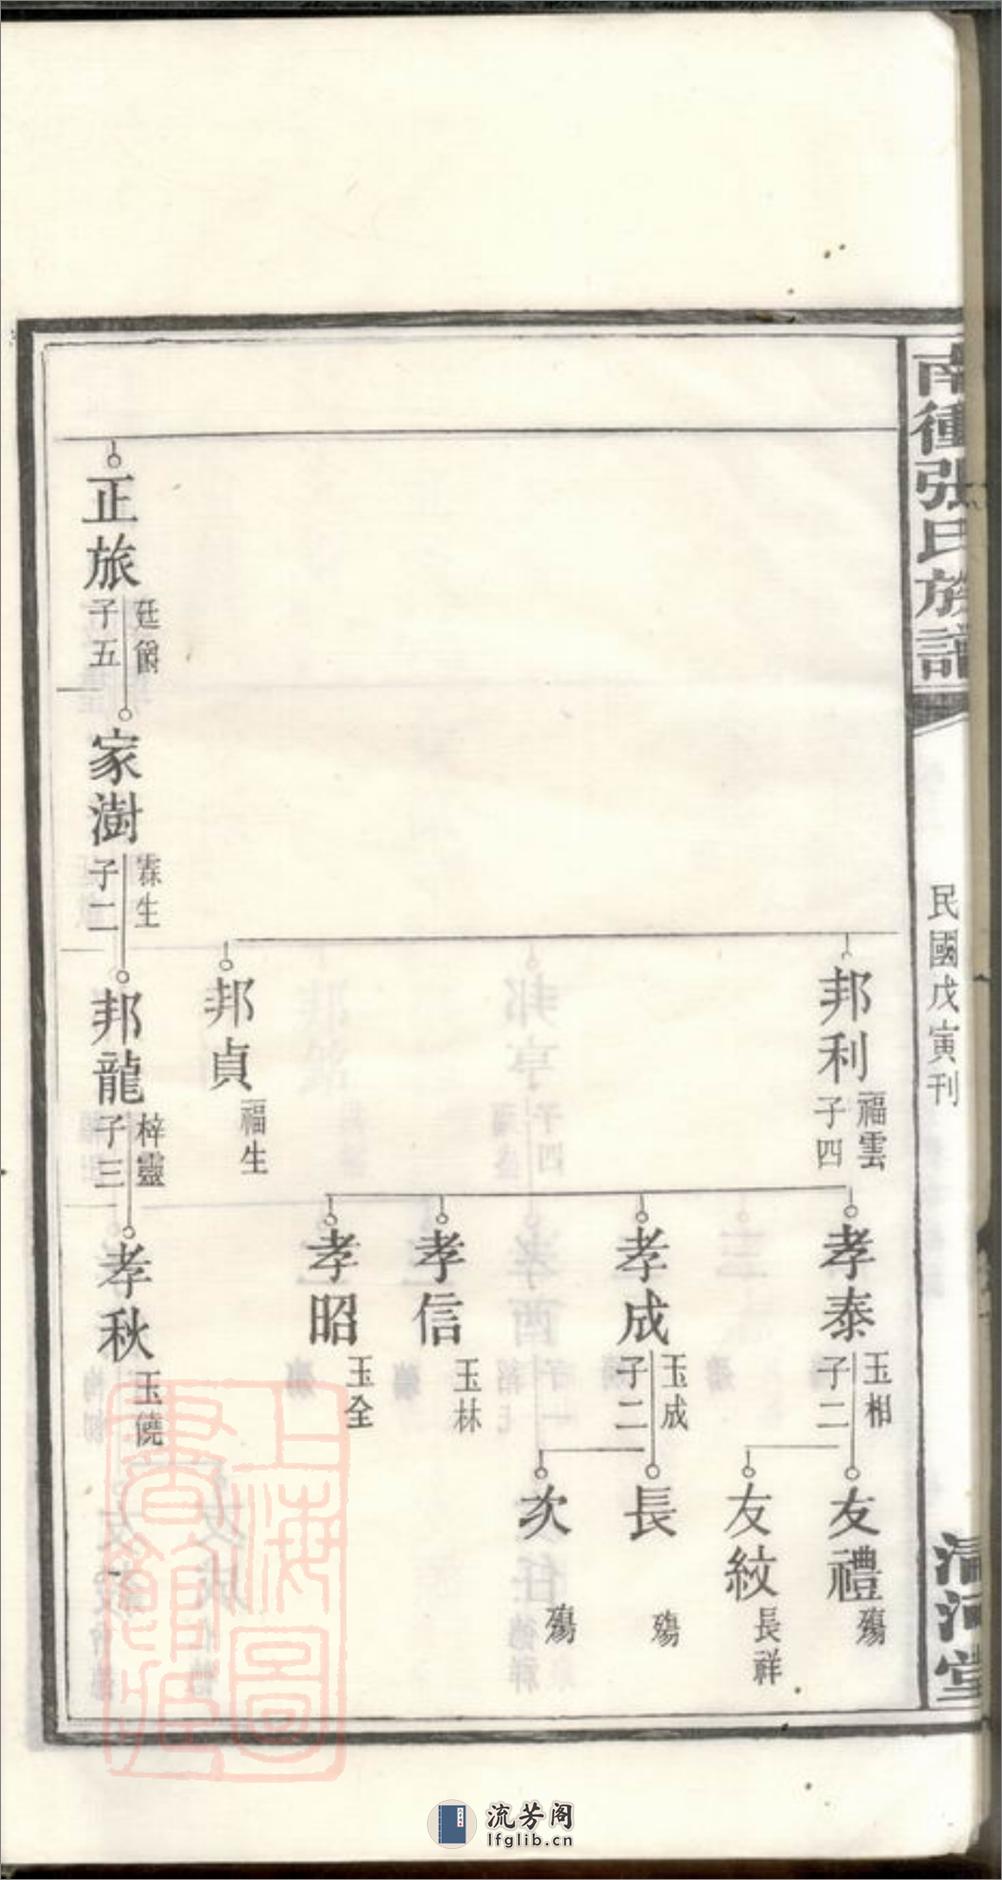 南衝張氏族譜
民國戊寅刊
清河堂
邦利
福雲
子四
孝泰
玉相
子二
友禮
殤
友紋
長祥
孝成
玉成
子二
長
殤
次
殤
孝信
玉林
孝昭
玉全
邦貞
福生
正旅
廷爵
子五
家澍
霖生
子二
邦龍
梓靈
子三
孝秋
玉饒
上海圖書館藏
流芳阁
lfglib.cn